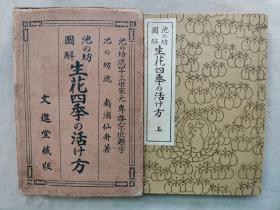 池の坊流四十三世家元專啓宗匠題字
池の坊流 南浦仙舟著
池の坊
圖解
生花四季の活け方
文進堂藏版
池の坊
圖解
生花四季の活け方
上